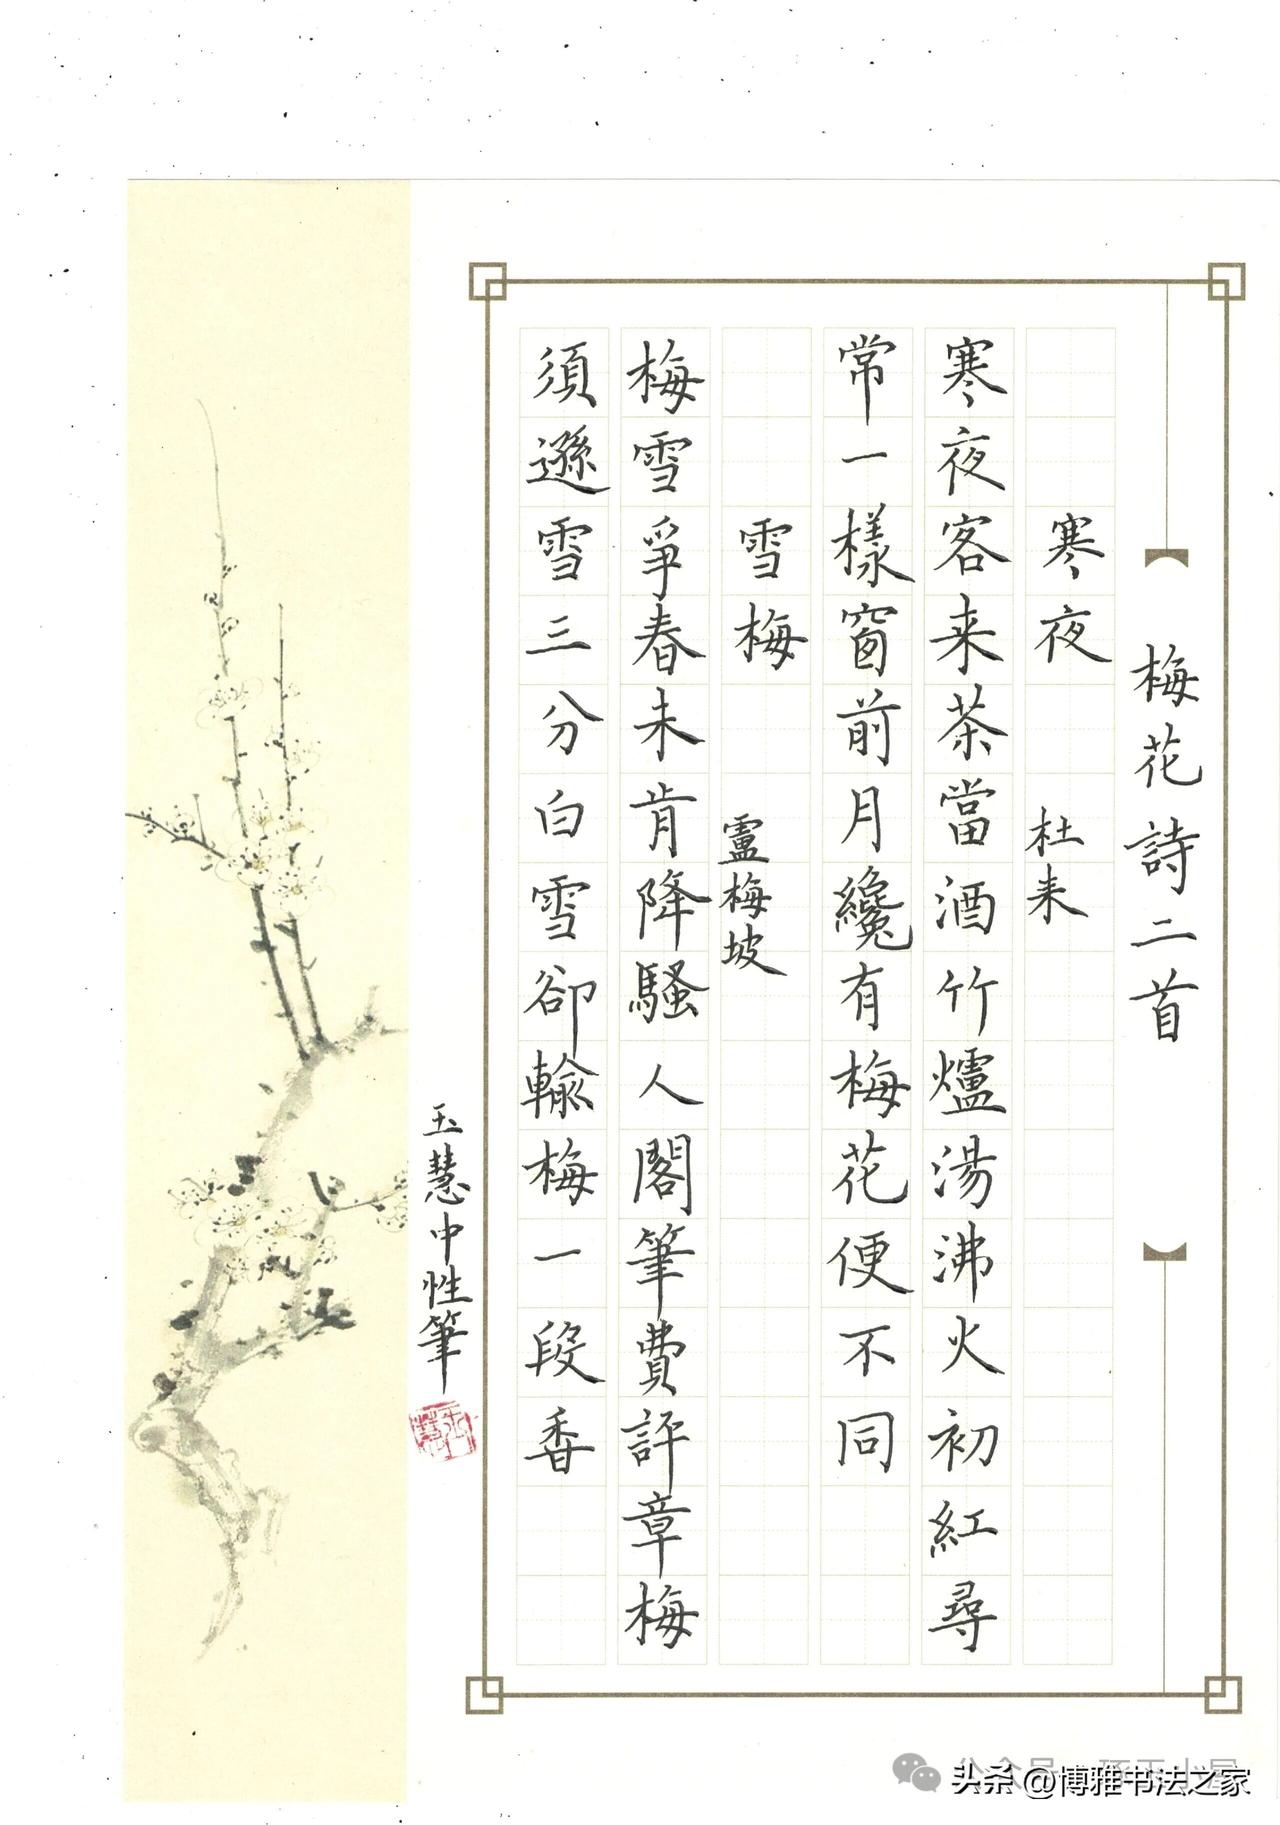 梅花詩二首
寒夜 杜来
寒夜客来茶當酒竹爐湯沸火初紅尋
常一樣窗前月纔有梅花便不同
雪梅 盧梅坡
梅雪爭春未肯降騷人閣筆費評章梅
須遜雪三分白雪卻輸梅一段香
玉慧中性筆
玉慧
头条 @博雅书法之家